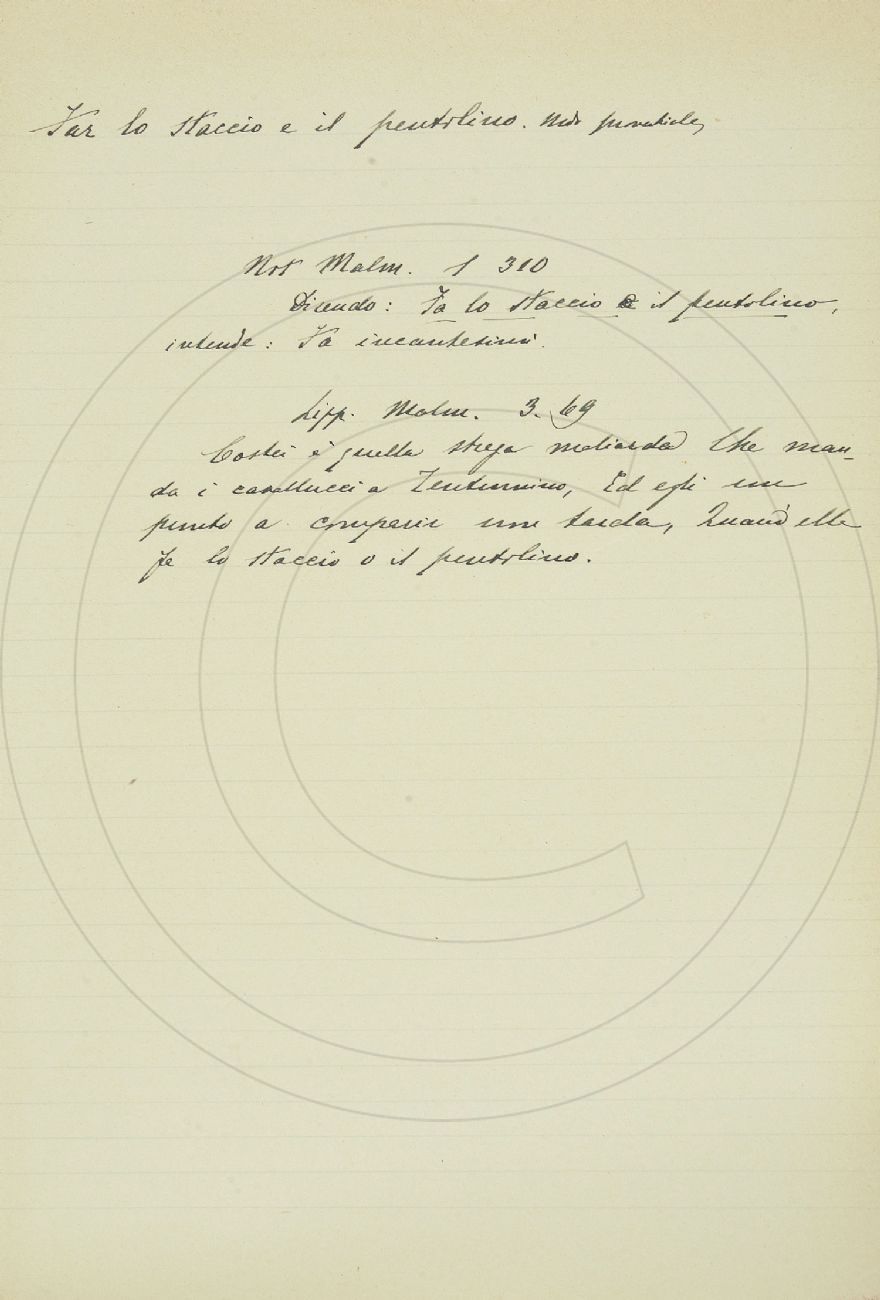 Far lo staccio e il pentolino. Modo proverbiale,
Not Malm. 1 310
Dicendo: Fa lo staccio e il pentolino,
intende: Fa incantesimi.
Lipp. Malm. 3. 69
Costei è quella strega maliarda Che man-
da i cavallucci a Tentennino, Ed egli un
punto a comparir non tarda, Quand'ella
fa lo staccio o il pentolino.